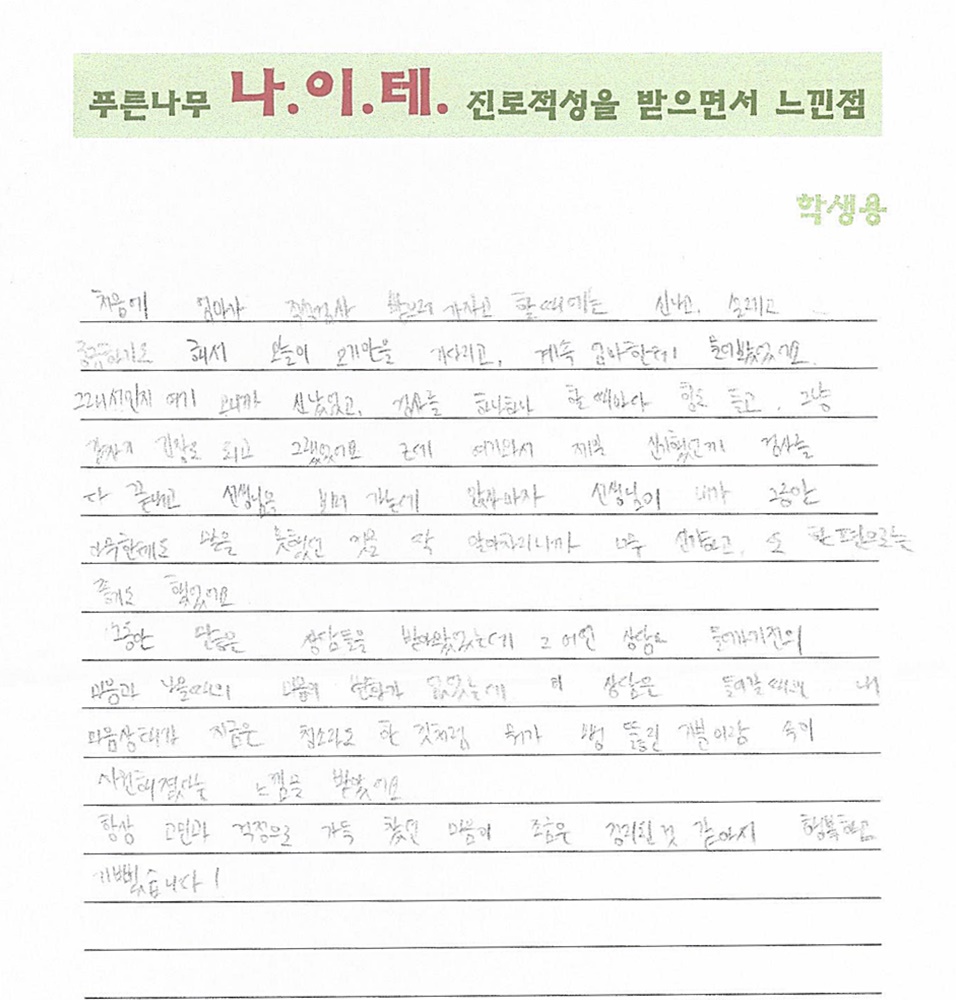 푸른나무 나.이.테. 진로적성을 받으면서 느낀점
학생용
처음에 엄마가 받으러 가자고 할때에는 신나고, 설레고
해서 오늘이 오기만을 기다리고, 계속 엄마한테 물어봤었어요
여기 오니까 신났었고, 검사를 하나하나 할때마다 힘도 들고, 그냥
긴장도 되고 그랬었어요 근데 여기와서 제일 신기했던게 검사를
다 끝내고 선생님을 보러 가는데 앉자마자 선생님이 내가 그동안
아무한테도 말을 못했던 것을 딱 알아차리니까 너무 신기하고, 또 한편으로는
좋기도 했었어요
그동안 많은 상담들을 받아왔었는데 그 어떤 상담도 들어가기전의
마음과 나올때의 마음의 변화가 없었는데 이 상담은 들어갈때에 내
마음상태가 지금은 청소라도 한 것처럼 뭐가 뻥 뚫린 기분이랑 속이
시원해졌다는 느낌을 받았어요
항상 고민과 걱정으로 가득 찼던 마음이 조금은 정리된것 같아서 행복하고
기뻤습니다!